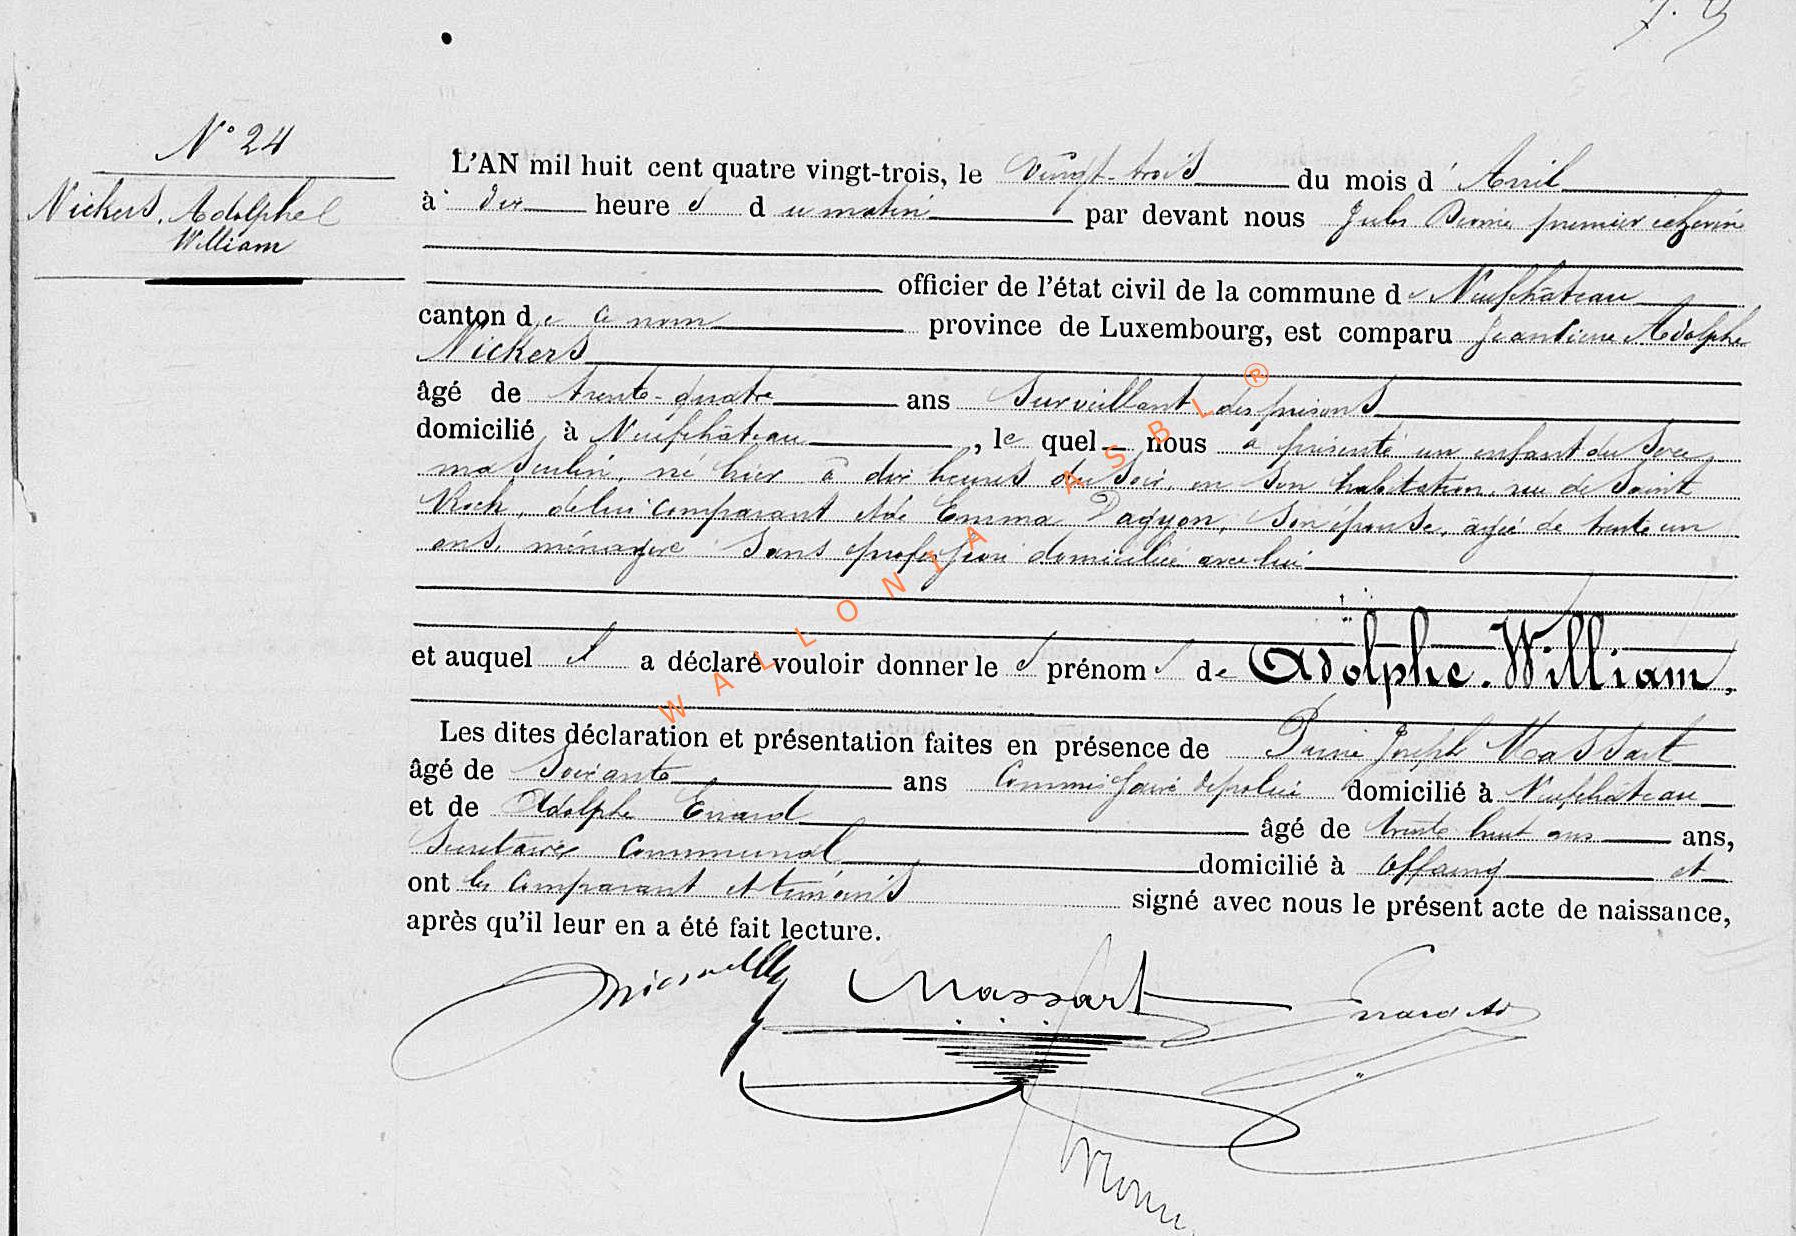 N° 24
Nickers, Adolphe
William
L'AN mil huit cent quatre vingt-trois, le vingt-trois du mois d' Avril
à dix heure s d u matin par devant nous Jules premier echevin
officier de l'état civil de la commune de Neufchâteau
canton de ce nom province de Luxembourg, est comparu Adolphe
Nickers
âgé de trente-quatre ans Surveillant des prisons
domicilié à Neufchâteau, le quel nous a présenté un enfant du sexe
masculin, né hier à dix heures du soir, en son habitation, rue de Saint
Roch, de lui comparant et de Emma Dagyon, son épouse, âgée de trente un
ans, ménagère sans profession domiciliée avec lui
et auquel il a déclaré vouloir donner le s prénom s de Adolphe-William,
Les dites déclaration et présentation faites en présence de Joseph Massart
âgé de soixante ans Commissaire de police domicilié à Neufchâteau
et de Adolphe Evrard âgé de trente huit ans ans,
Secrétaire Communal domicilié à Offaing et
ont les comparant et témoins signé avec nous le présent acte de naissance,
après qu'il leur en a été fait lecture.
Massart
WALLONIA ASBL ®